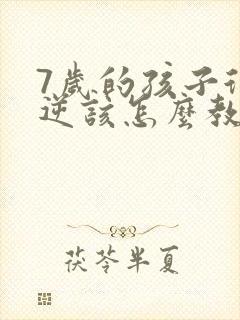 7歲的孩子
逆該怎麼教
茯苓半夏